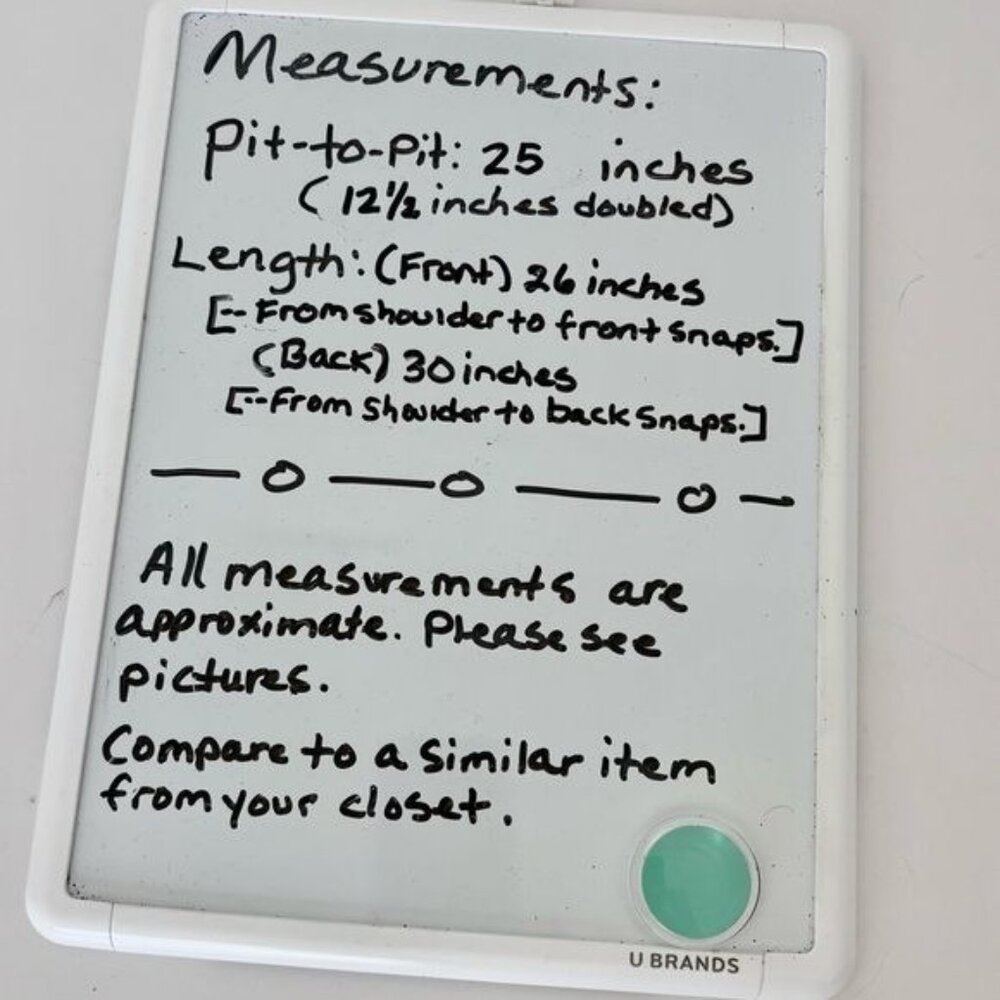 Measurements:
Pit-to-Pit: 25 inches
(12½ inches doubled)
Length: (Front) 26 inches
[-- From shoulder to front snaps.]
(Back) 30 inches
[--From shoulder to back snaps.]
All measurements are
approximate. Please see
pictures.
Compare to a similar item
from your closet.
U BRANDS